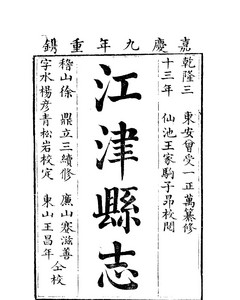 嘉慶九年重鐫
乾隆三十三年
東安曾受一正萬纂修
仙池王家駒子昂校閱
江津縣志
稽山徐鼎立三續修
字水楊彦青松岩校定
廉山寋滋善
東山王昌年
仝校